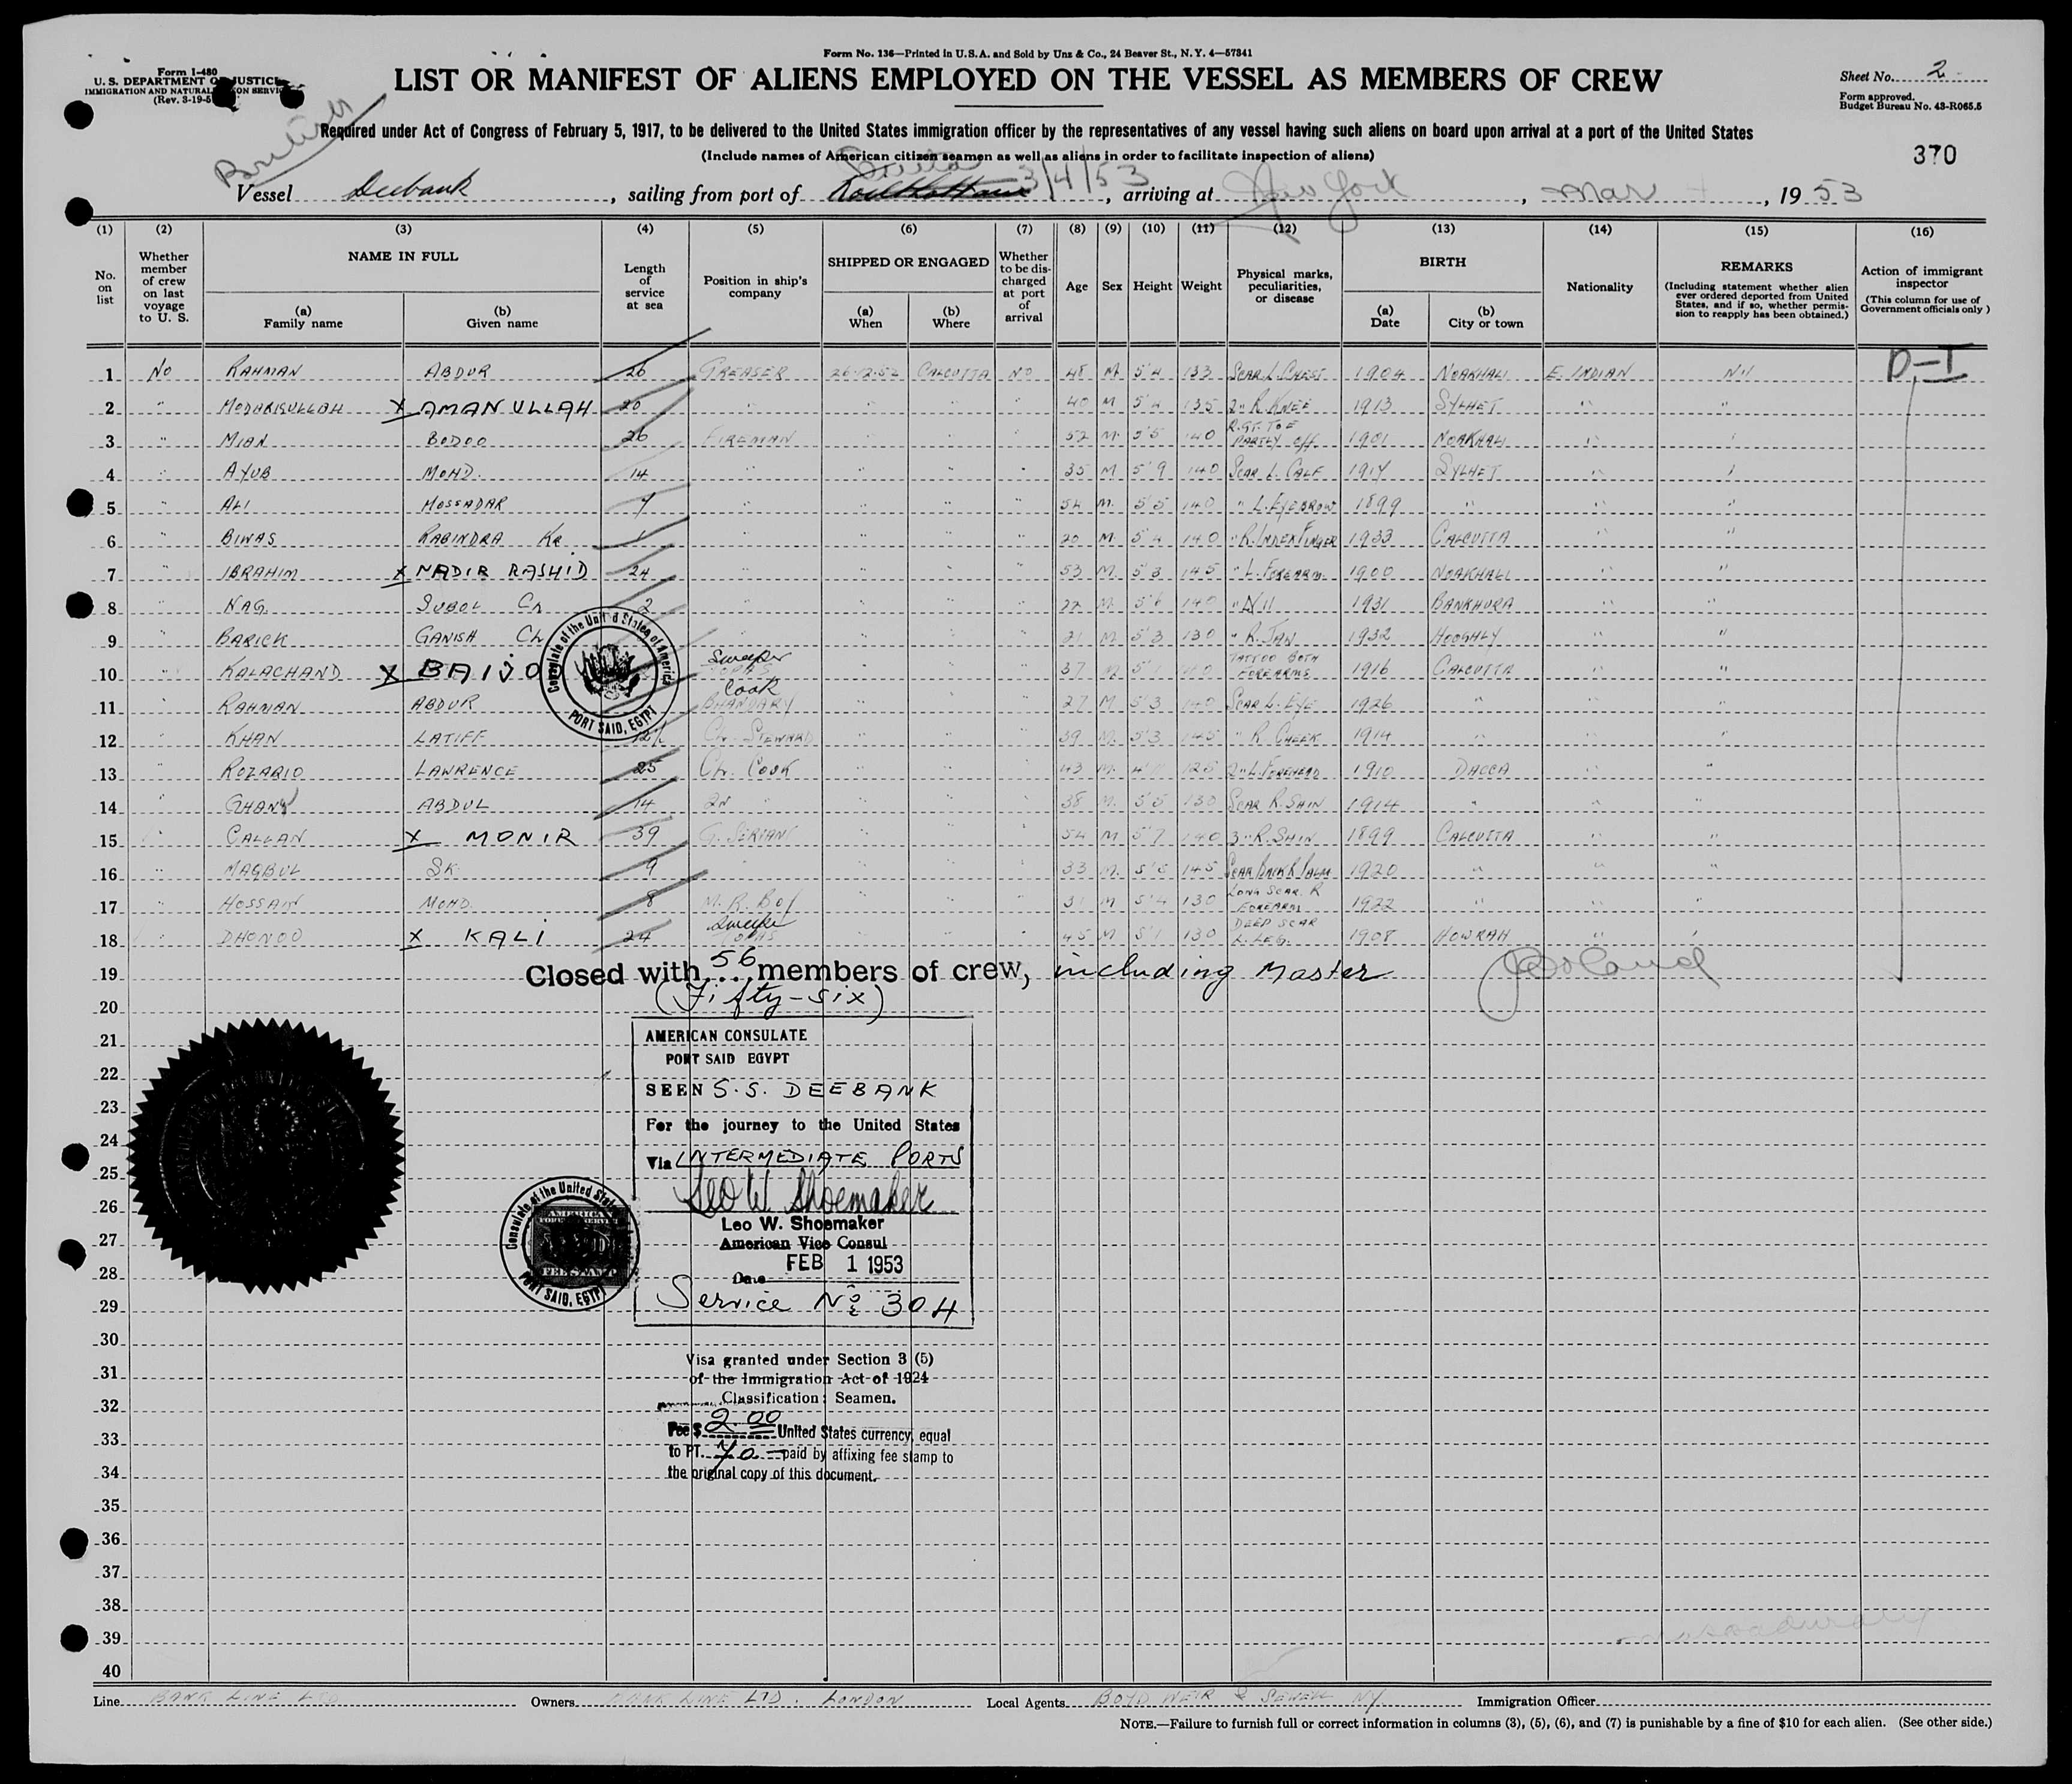 Form No. 136—Printed in U.S.A. and Sold by Unz & Co., 24 Beaver St., N. Y. 4—57341
Form I-480
U. S. DEPARTMENT OF JUSTICE
IMMIGRATION AND NATURALIZATION SERVICE
(Rev. 3-19-5
LIST OR MANIFEST OF ALIENS EMPLOYED ON THE VESSEL AS MEMBERS OF CREW
Sheet No. 2
Form approved.
Budget Bureau No. 43-R065.5
British
Required under Act of Congress of February 5, 1917, to be delivered to the United States immigration officer by the representatives of any vessel having such aliens on board upon arrival at a port of the United States
(Include names of American citizen seamen as well as aliens in order to facilitate inspection of aliens)
370
Vessel Deebank, sailing from port of 3/4/53, arriving at New York, Mar, 1953
(1) (2) (3) (4) (5) (6) (7) (8) (9) (10) (11) (12) (13) (14) (15) (16)
No. on list
Whether member of crew on last voyage to U. S.
NAME IN FULL
(a) Family name
(b) Given name
Length of service at sea
Position in ship's company
SHIPPED OR ENGAGED
(a) When
(b) Where
Whether to be discharged at port of arrival
Age
Sex
Height
Weight
Physical marks, peculiarities, or disease
BIRTH
(a) Date
(b) City or town
Nationality
REMARKS
(Including statement whether alien ever ordered deported from United States, and if so, whether permission to reapply has been obtained.)
Action of immigrant inspector
(This column for use of Government officials only)
1 No RAHMAN ABDUR 26 GREASER 26.12.52 CALCUTTA NO 48 M 5'4 133 SCAR L. CHEST 1904 NOAKHALI E. INDIAN Nil D-I
2 " MODARISULLAH X AMAN ULLAH 20 " " " " 40 M 5'4 135 2" R. KNEE 1913 SYLHET " "
3 " MIAN BODOO 26 FIREMAN " " " 52 M. 5'5 140 R.GT. TOE PARTLY Off. 1901 NOAKHALI " "
4 " AYUB MOHD. 14 " " " " 35 M 5'9 140 SCAR L. CALF 1917 SYLHET " "
5 " ALI MOSSADAR 7 " " " " 54 M. 5'5 140 " L. EYEBROW 1899 " " "
6 " BIWAS RABINDRA Kr. 1 " " " " 20 M. 5'4 140 " R. INDEX FINGER 1933 CALCUTTA " "
7 " IBRAHIM X NADIR RASHID 24 " " " " 53 M. 5'3 145 " L. FOREARM 1900 NOAKHALI " "
8 " NAG SUBOL Ch 2 " " " " 22 M. 5'6 140 " Nil 1931 BANKHURA " "
9 " BARICK GANISH Ch " " " " 21 M 5'3 130 " R. JAN 1932 HOOGHLY " "
10 " KALACHAND X BAIJO Sweeper " " " 37 M. 5'1 TATTOO BOTH FOREARMS 1916 CALCUTTA " "
11 " RAHMAN ABDUR Cook BHANDARY " " " 27 M 5'3 140 SCAR L. EYE 1926 " " "
12 " KHAN LATIFF 12½ Ch. STEWARD " " " 39 M. 5'3 145 " R. CHEEK 1914 " " "
13 " ROZARIO LAWRENCE 25 Ch. COOK " " " 43 M. 125 2" L. FOREHEAD 1910 DACCA " "
14 " GHANY ABDUL 14 2N " " " " 38 M. 5'5 130 SCAR R. SHIN 1914 " " "
15 " CALLAN X MONIR 39 G. SERVANT " " " 54 M 5'7 140 3" R. SHIN 1899 CALCUTTA " "
16 " MAQBUL SK 9 " " " " 33 M. 5'5 145 SCAR BACK R PALM 1920 " " "
17 " HOSSAIN MOHD. 8 M. R. BOY " " " 31 M 5'4 130 LONG SCAR R FOREARM 1922 " " "
18 " DHONOO X KALI 24 Sweeper TOPAS " " " 45 M 5'1 130 DEEP SCAR L. LEG. 1908 HOWRAH " "
19 Closed with 56 members of crew, including Master
20 (Fifty-six)
21
22
23
24
25
26
27
28
29
30
31
32
33
34
35
36
37
38
39
40
Consulate of the United States of America
PORT SAID, EGYPT
AMERICAN CONSULATE
PORT SAID EGYPT
SEEN S.S. DEEBANK
For the journey to the United States
Via INTERMEDIATE PORTS
Leo W. Shoemaker
Leo W. Shoemaker
American Vice Consul
FEB 1 1953
Date
Service No 304
Consulate of the United States
AMERICAN
FEE STAMP
PORT SAID, EGYPT
Visa granted under Section 3 (5)
of the Immigration Act of 1924
Classification: Seamen.
Fee $ 2.00 United States currency, equal
to PT. 70 — paid by affixing fee stamp to
the original copy of this document.
Line BANK LINE LTD Owners BANK LINE LTD. LONDON Local Agents BOYD WEIR & SEWELL NY Immigration Officer
NOTE.—Failure to furnish full or correct information in columns (3), (5), (6), and (7) is punishable by a fine of $10 for each alien. (See other side.)